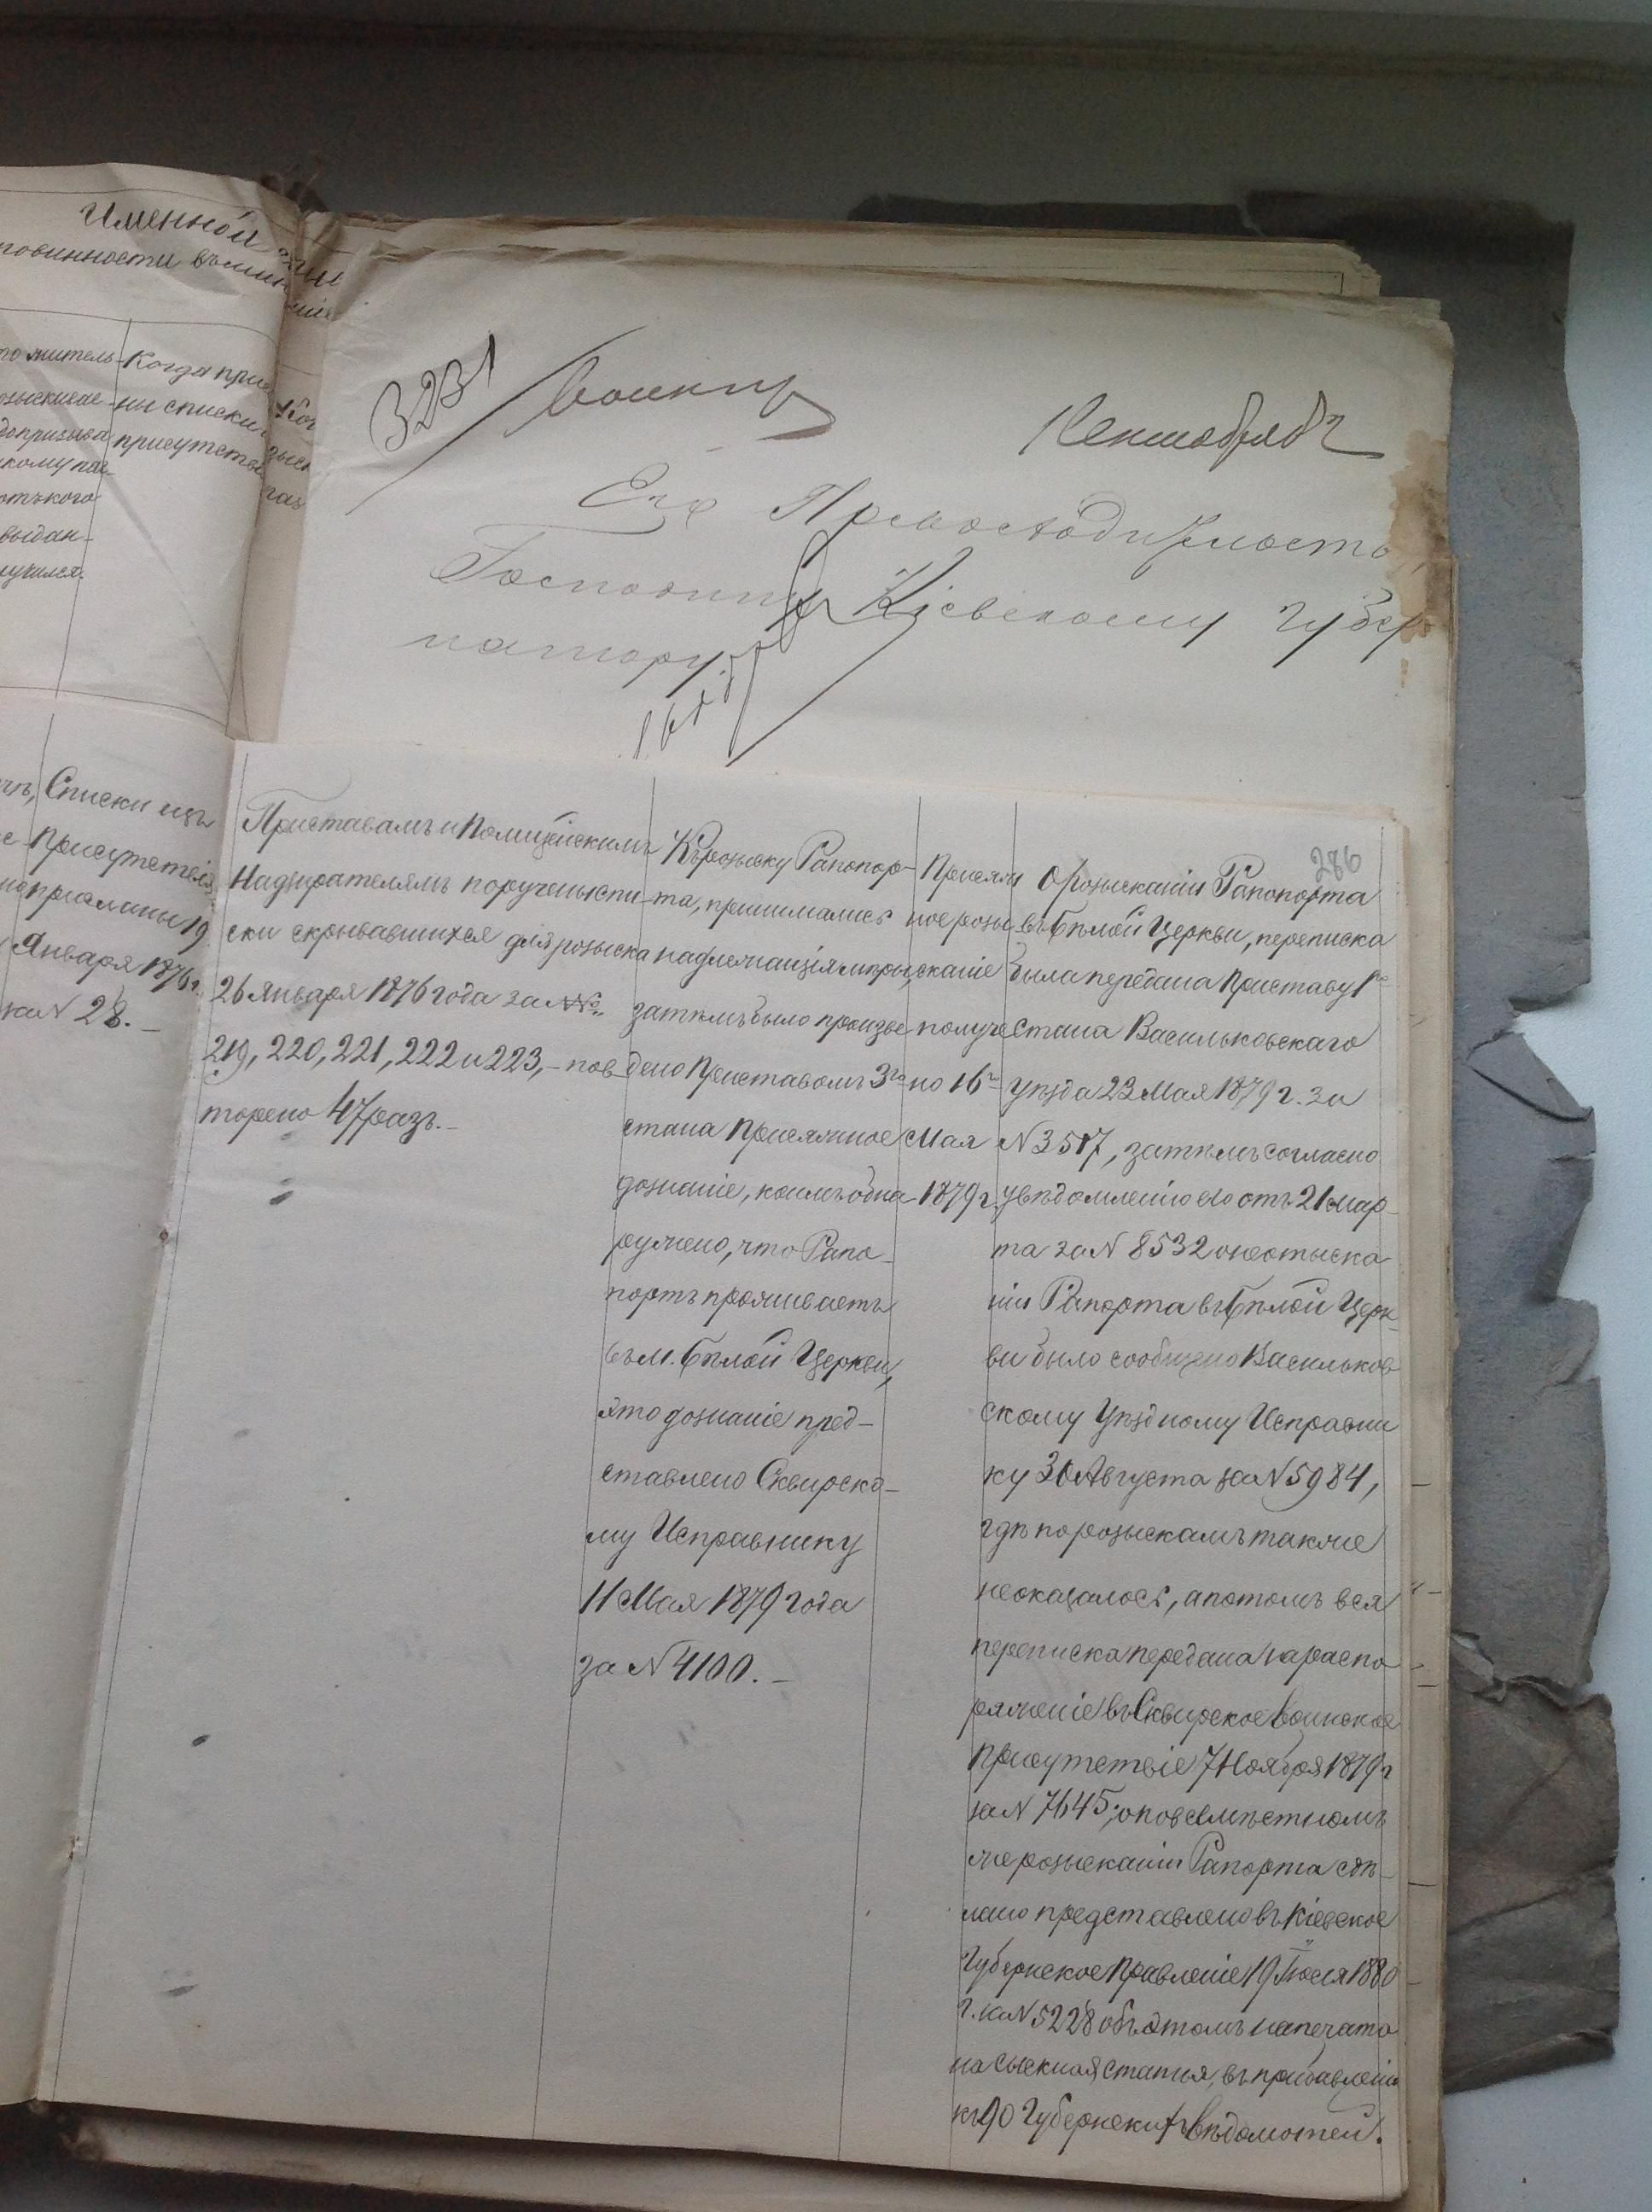 Именной
повинности
житель-
Когда при
розыскивае-
ны списки
до призыва
присутстві
кому пас-
отъ кого
выдан-
лучился.
3231
воинск
Его Превосходительство
Господину Кіевскому Губер
натору.
286
Списки изъ
Присутствія
приняты 19
Января 1876 г.
за N 28.—
Приставамъ и Полицейскимъ
Надзирателямъ поручены спи-
ски скрывавшихся для розыска
26 Января 1876 года за №№
219, 220, 221, 222 и 223,- пов-
торено 47 разъ.-
Къ розыску Рапопор-
та, принимались
надлежащія мѣры,
затѣмъ было произве-
дено Приставомъ 3го
стана Присяжное
дознаніе, коимъ обна-
ружено, что Рапо-
портъ проживаетъ
въ м. Бѣлой Церкви,
это дознаніе пред-
ставлено Сквирско-
му Исправнику
11 Мая 1879 года
за N 4100.-
Присяж
ное розы
сканіе
получе
но 16го
Мая
1879 г.
О розысканіи Рапопорта
въ Бѣлой Церкви, переписка
была передана Приставу 1го
Стана Васильковскаго
уѣзда 22 Мая 1879 г. за
N 3517, затѣмъ согласно
увѣдомленію его отъ 21 мар-
та за N 8532 о неотыска-
ніи Рапорта въ Бѣлой Церк-
ви было сообщено Васильков
скому Уѣздному Исправни
ку 30 Августа за N 5984,
гдѣ по розыскамъ также
не оказалось, а потомъ вся
переписка передана на распо
ряженіе въ Сквирское Воинское
Присутствіе 7 Ноября 1879 г
за N 7645; о повсемѣстномъ
же розысканіи Рапорта сдѣ-
лано представлено въ Кіевское
Губернское Правленіе 19 Іюля 1880
г. за N 5228 объ этомъ напечата
на сыскная статья, въ прибавленіи
къ 90 Губернскихъ Вѣдомостей.